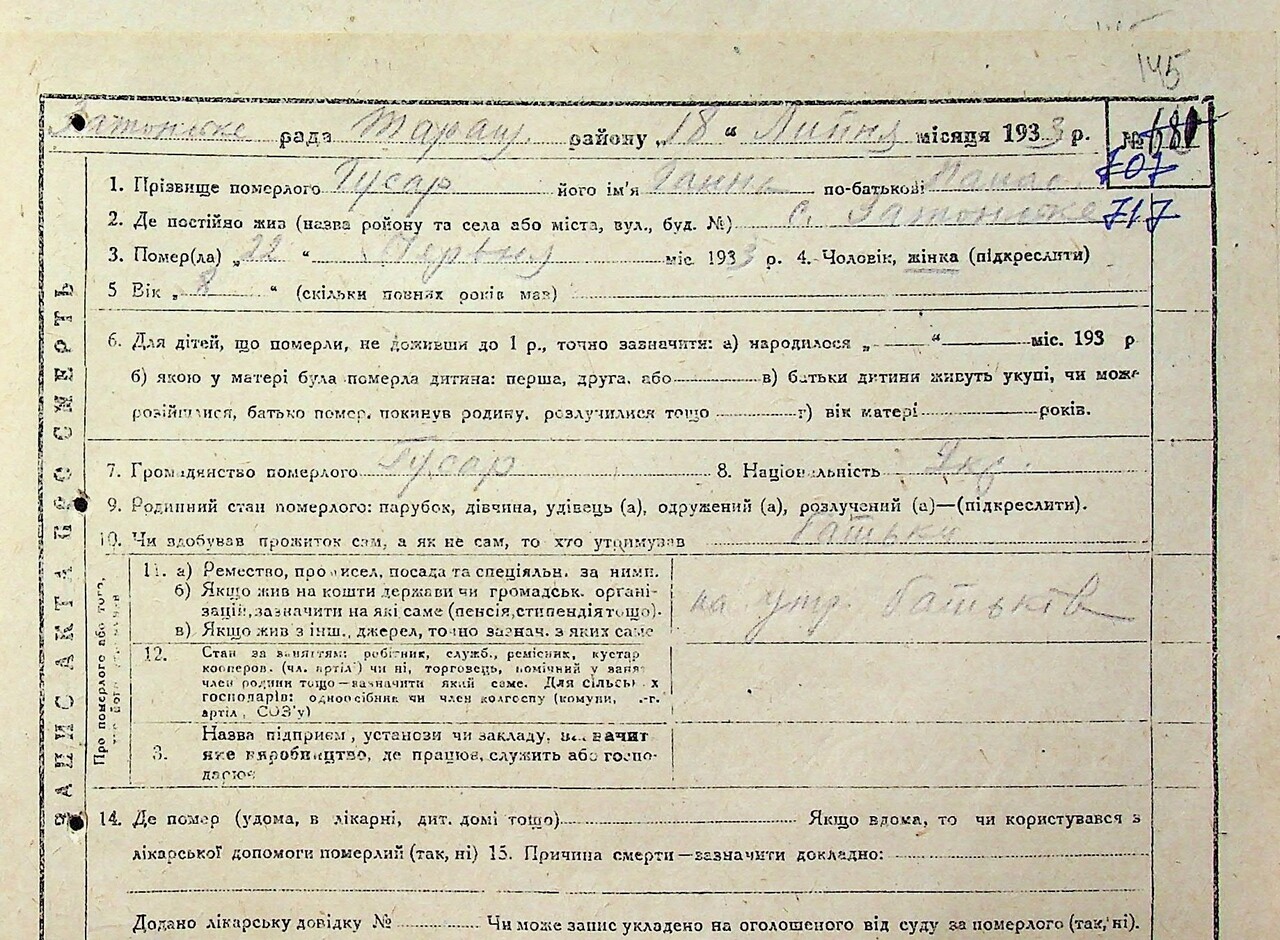 145
Затонське рада Таращ. району „18“ Липня місяця 1933 р. №
707
1. Прізвище померлого Гусар його ім'я Ганна по-батькові Панас.
2. Де постійно жив (назва ройону та села або міста, вул., буд. №) с. Затонське 717
3. Помер(ла) „22“ Червня міс. 1933 р. 4. Чоловік, жінка (підкреслити)
5 Вік „8“ (скільки повних років мав)
6. Для дітей, що померли, не доживши до 1 р., точно зазначити: а) народилося „ “ міс. 193 р
б) якою у матері була померла дитина: перша, друга, або в) батьки дитини живуть укупі, чи може
розійшлися, батько помер, покинув родину, розлучилися тощо г) вік матері років.
7. Громадянство померлого Гусар 8. Національність Укр.
9. Родинний стан померлого: парубок, дівчина, удівець (а), одружений (а), розлучений (а)—(підкреслити).
10. Чи здобував прожиток сам, а як не сам, то хто утримував батьки
11. а) Ремество, промисел, посада та спеціяльн. за ними.
б) Якщо жив на кошти держави чи громадськ. органі-
зацій, зазначити на які саме (пенсія, стипендія тощо).
на утр. батьків
в) Якщо жив з інш., джерел, точно зазнач. з яких саме
12. Стан за заняттям: робітник, служб., ремісник, кустар
кооперов. (чл. артіл') чи ні, торговець, помічний у занят
член родини тощо—зазначити який саме. Для сільськ х
господарів: одноосібник чи член колгоспу (комуни, .-г.
артіл, СОЗ'у)
Назва підприєм, установи чи закладу, зазначит
3. яке виробництво, де працює, служить або госпо-
дарює
14. Де помер (удома, в лікарні, дит. домі тощо) Якщо вдома, то чи користувався з
лікарської допомоги померлий (так, ні) 15. Причина смерти—зазначити докладно:
Додано лікарську довідку № Чи може запис укладено на оголошеного від суду за померлого (так, ні).
ЗАПИС АКТА ПРО СМЕРТЬ
Про померлого або того,